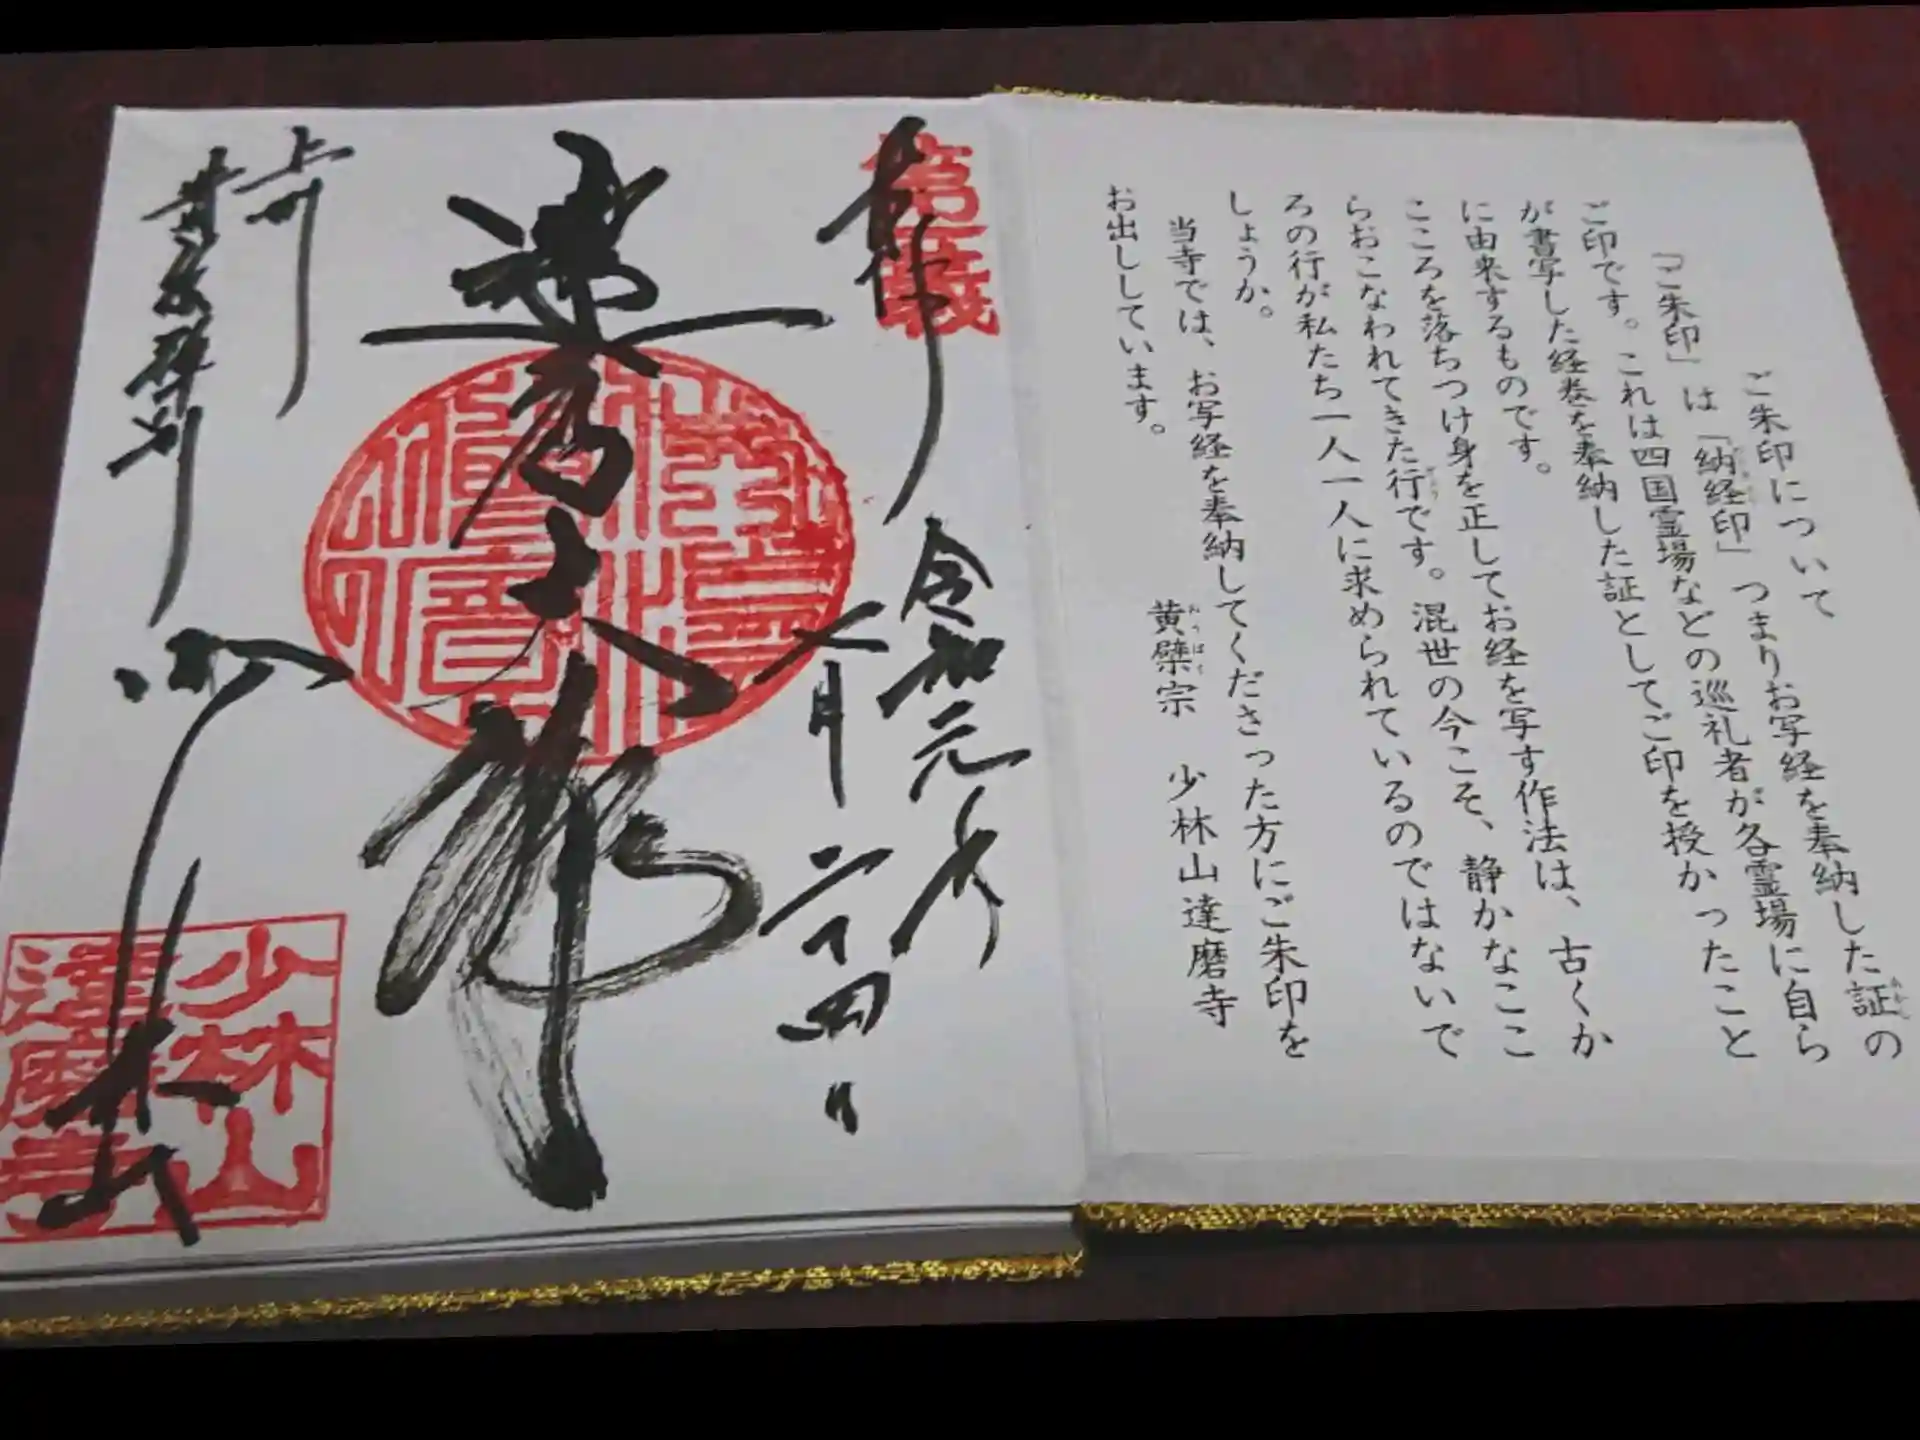 ご朱印について
「ご朱印」は「納経印」つまりお写経を奉納した証の
ご印です。これは四国霊場などの巡礼者が各霊場に自ら
が書写した経巻を奉納した証としてご印を授かったこと
に由来するものです。
こころを落ちつけ身を正してお経を写す作法は、古くか
らおこなわれてきた行です。混世の今こそ、静かなここ
ろの行が私たち一人一人に求められているのではないで
しょうか。
当寺では、お写経を奉納してくださった方にご朱印を
お出ししています。
黄檗宗 少林山達磨寺
奉拝
第一義
令和元年
七月二十四日
達磨大師
上州
黄檗
少林山
少林山
達磨寺